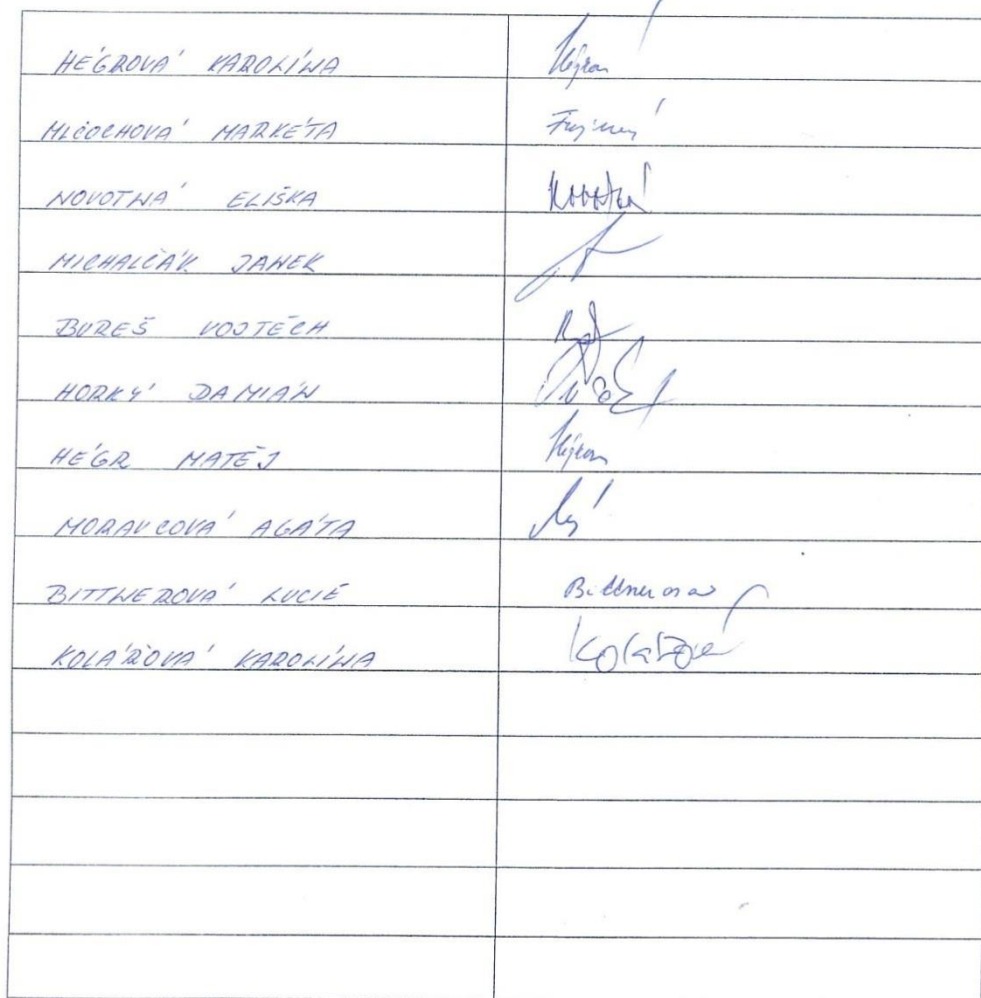 HÉGROVÁ KAROLÍNA
MLČOCHOVÁ MARKÉTA
NOVOTNÁ ELIŠKA Novotná
MICHALČÁK JANEK
BUREŠ VOJTĚCH
HORKÝ DAMIÁN
HÉGR MATĚJ
MORAVCOVÁ AGÁTA
BITTNEROVÁ LUCIE Bittnerova
KOLÁŘOVÁ KAROLÍNA Kolářová